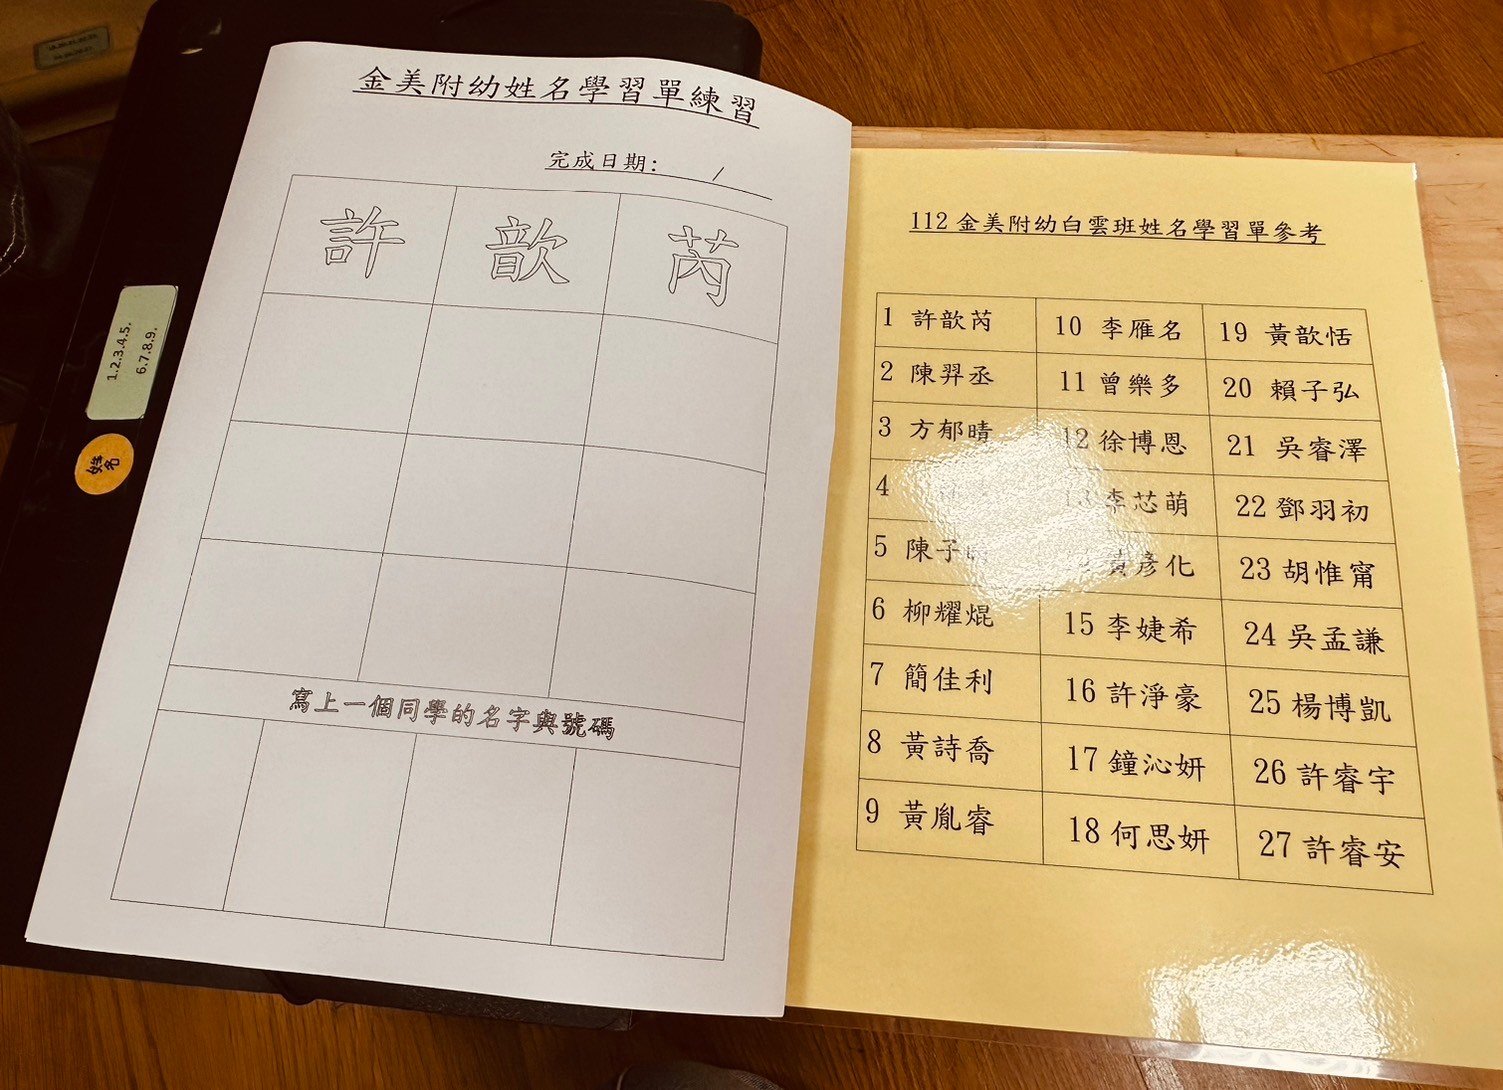 1.2.3.4.5.
6.7.8.9.
姓名
金美附幼姓名學習單練習
完成日期: /
許 歆 芮
寫上一個同學的名字與號碼
112 金美附幼白雲班姓名學習單參考
1 許歆芮 10 李雁名 19 黃歆恬
2 陳羿丞 11 曾樂多 20 賴子弘
3 方郁晴 12 徐博恩 21 吳睿澤
4 13 李芯萌 22 鄧羽初
5 陳子 黃彥化 23 胡惟甯
6 柳耀焜 15 李婕希 24 吳孟謙
7 簡佳利 16 許淨豪 25 楊博凱
8 黃詩喬 17 鐘沁妍 26 許睿宇
9 黃胤睿 18 何思妍 27 許睿安